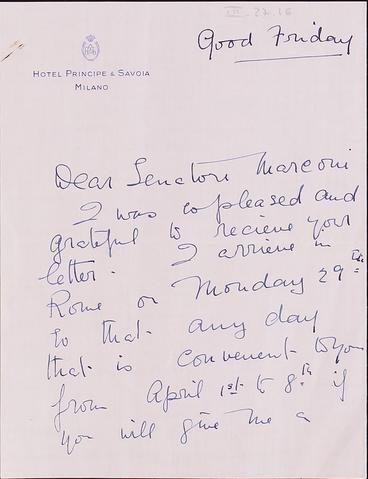 III.27.16
Good Friday
HOTEL PRINCIPE & SAVOIA
MILANO
Dear Senatore Marconi
I was so pleased and
grateful to recieve your
letter. I arrieve in
Rome on Monday 29th
so that any day
that is convenient to you
from April 1st to 8th if
you will give me a